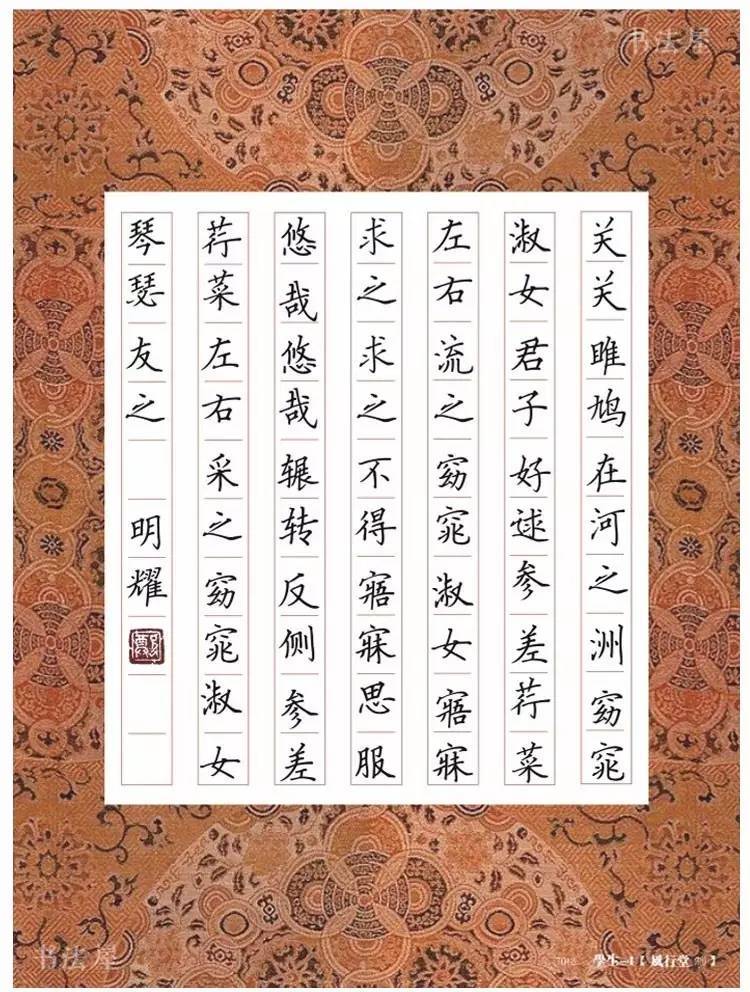 书法屋
关关雎鸠在河之洲窈窕
淑女君子好逑参差荇菜
左右流之窈窕淑女寤寐
求之求之不得寤寐思服
悠哉悠哉辗转反侧参差
荇菜左右采之窈窕淑女
琴瑟友之 明耀
书法屋
風行堂